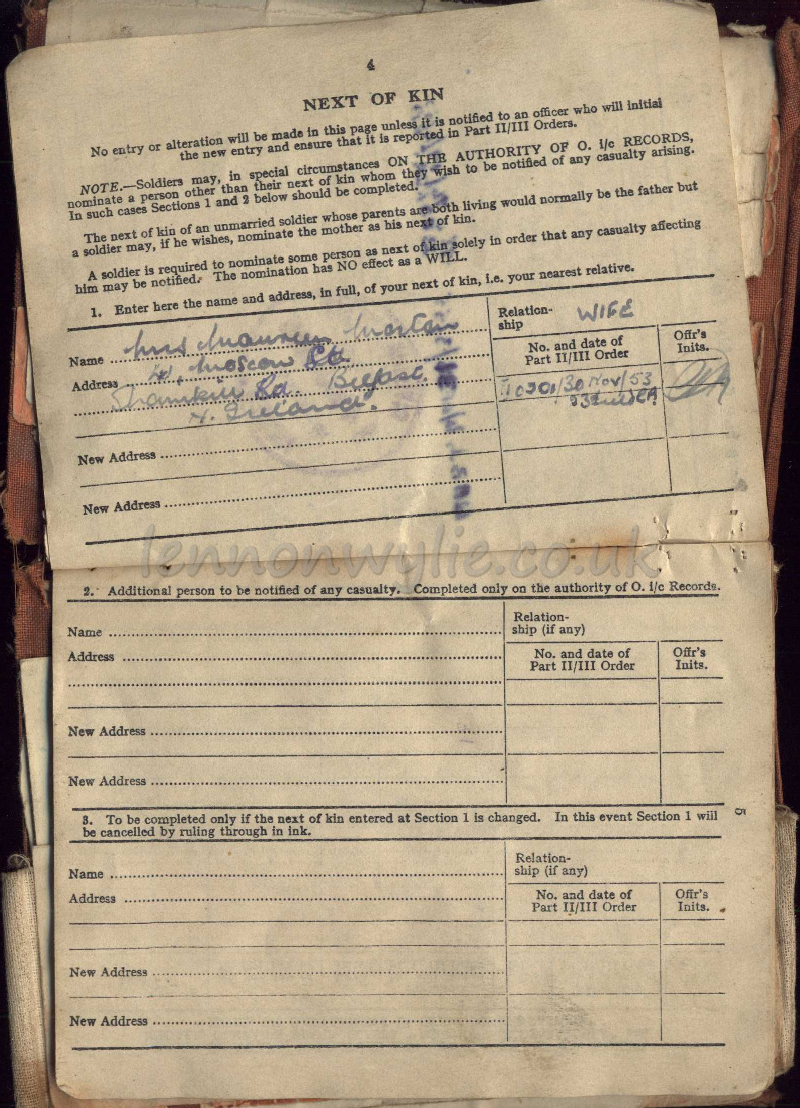 4
NEXT OF KIN
No entry or alteration will be made in this page unless it is notified to an officer who will initial
the new entry and ensure that it is reported in Part II/III Orders.
NOTE.—Soldiers may, in special circumstances ON THE AUTHORITY OF O. i/c RECORDS,
nominate a person other than their next of kin whom they wish to be notified of any casualty arising.
In such cases Sections 1 and 2 below should be completed.
The next of kin of an unmarried soldier whose parents are both living would normally be the father but
a soldier may, if he wishes, nominate the mother as his next of kin.
A soldier is required to nominate some person as next of kin solely in order that any casualty affecting
him may be notified. The nomination has NO effect as a WILL.
1. Enter here the name and address, in full, of your next of kin, i.e. your nearest relative.
Name Mrs Maureen
Relation-
ship WIFE
Address Moscow St.
No. and date of
Part II/III Order
Offr's
Inits.
Shankill Rd. Belfast.
30 Nov/53
N. Ireland.
New Address
New Address
lennonwylie.co.uk
2. Additional person to be notified of any casualty. Completed only on the authority of O. i/c Records.
Name
Relation-
ship (if any)
Address
No. and date of
Part II/III Order
Offr's
Inits.
New Address
New Address
3. To be completed only if the next of kin entered at Section 1 is changed. In this event Section 1 will
be cancelled by ruling through in ink.
5
Name
Relation-
ship (if any)
Address
No. and date of
Part II/III Order
Offr's
Inits.
New Address
New Address